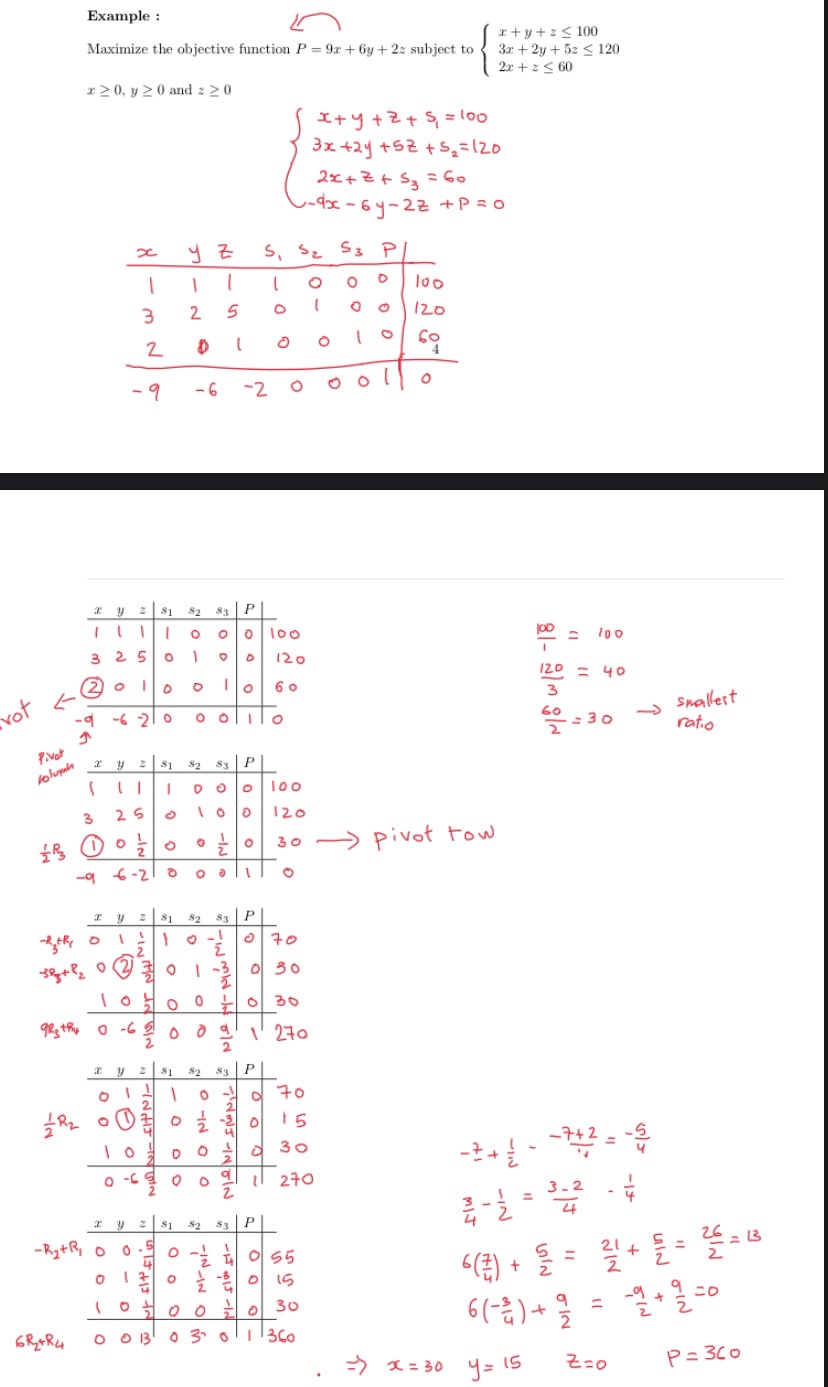 Example :
Maximize the objective function P = 9x + 6y + 2z subject to { x + y + z ≤ 100
3x + 2y + 5z ≤ 120
2x + z ≤ 60
x ≥ 0, y ≥ 0 and z ≥ 0
x + y + z + s₁ = 100
3x + 2y + 5z + s₂ = 120
2x + z + s₃ = 60
-9x - 6y - 2z + P = 0
x y z s₁ s₂ s₃ P
1 1 1 1 0 0 0 100
3 2 5 0 1 0 0 120
2 0 1 0 0 1 0 60
4
-9 -6 -2 0 0 0 1 0
x y z s₁ s₂ s₃ P
1 1 1 1 0 0 0 100
3 2 5 0 1 0 0 120
2 0 1 0 0 1 0 60
vot
-9 -6 -2 0 0 0 1 0
100/1 = 100
120/3 = 40
60/2 = 30 → smallest ratio
Pivot column
x y z s₁ s₂ s₃ P
1 1 1 1 0 0 0 100
3 2 5 0 1 0 0 120
½R₃ 1 0 ½ 0 0 ½ 0 30 → pivot row
-9 -6 -2 0 0 0 1 0
x y z s₁ s₂ s₃ P
-R₃+R₁ 0 1 ½ 1 0 -½ 0 70
-3R₃+R₂ 0 2 7/2 0 1 -3/2 0 30
1 0 ½ 0 0 ½ 0 30
9R₃+R₄ 0 -6 5/2 0 0 9/2 1 270
x y z s₁ s₂ s₃ P
0 1 ½ 1 0 -½ 0 70
½R₂ 0 1 7/4 0 ½ -3/4 0 15
1 0 ½ 0 0 ½ 0 30
0 -6 5/2 0 0 9/2 1 270
x y z s₁ s₂ s₃ P
-R₂+R₁ 0 0 -5/4 0 -½ ¼ 0 55
0 1 7/4 0 ½ -3/4 0 15
1 0 ½ 0 0 ½ 0 30
6R₂+R₄ 0 0 13 0 3 0 1 360
-7/4 + 1/2 - -7+2/4 = -5/4
3/4 - 1/2 = 3-2/4 - 1/4
6(7/4) + 5/2 = 21/2 + 5/2 = 26/2 = 13
6(-3/4) + 9/2 = -9/2 + 9/2 = 0
⇒ x = 30 y = 15 z = 0 P = 360